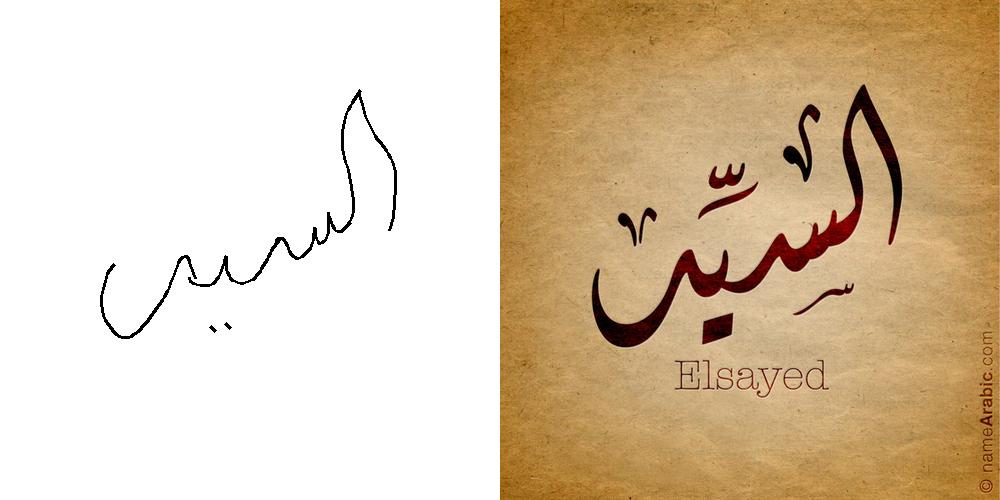 السيد
السِّيِّد
Elsayed
© nameArabic.com